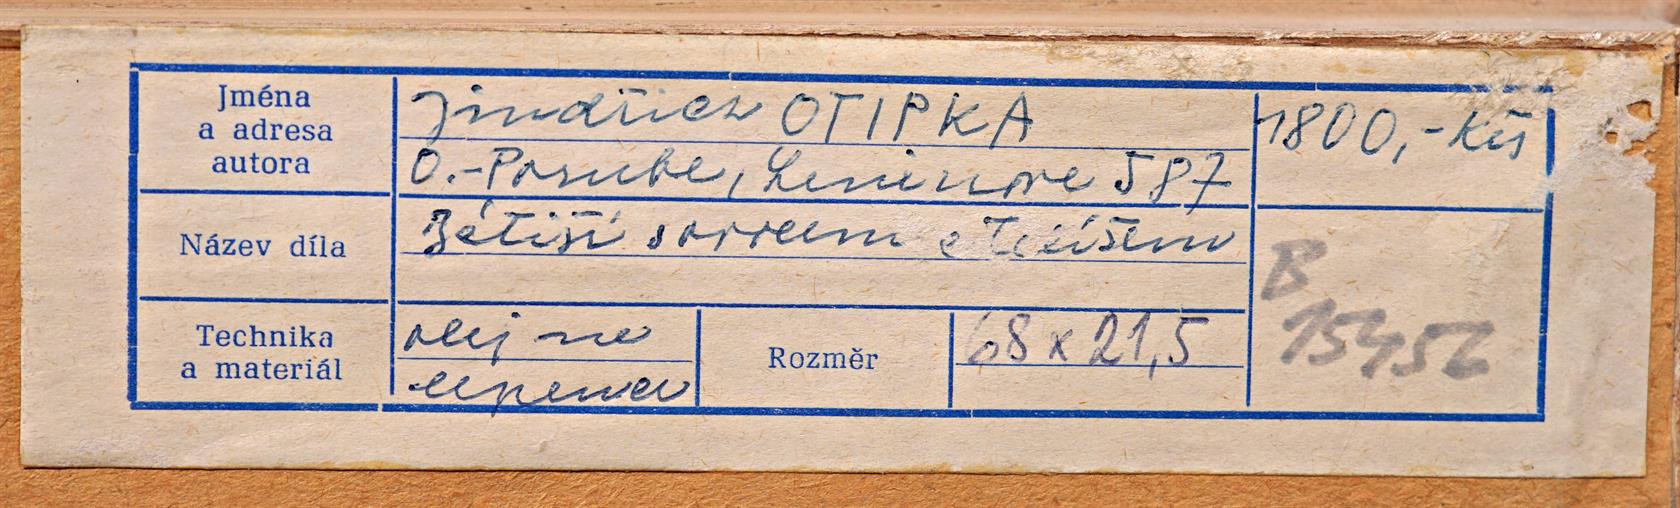 Jména
a adresa
autora
Jindřich OTIPKA
O.-Poruba, Leninova 587
1800,- Kčs
Název díla
Zátiší s ovocem a
Technika
a materiál
olej na
Rozměr
68 x 21,5
B
15456